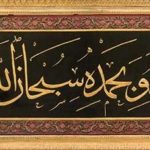 وبحمده سبحان الله